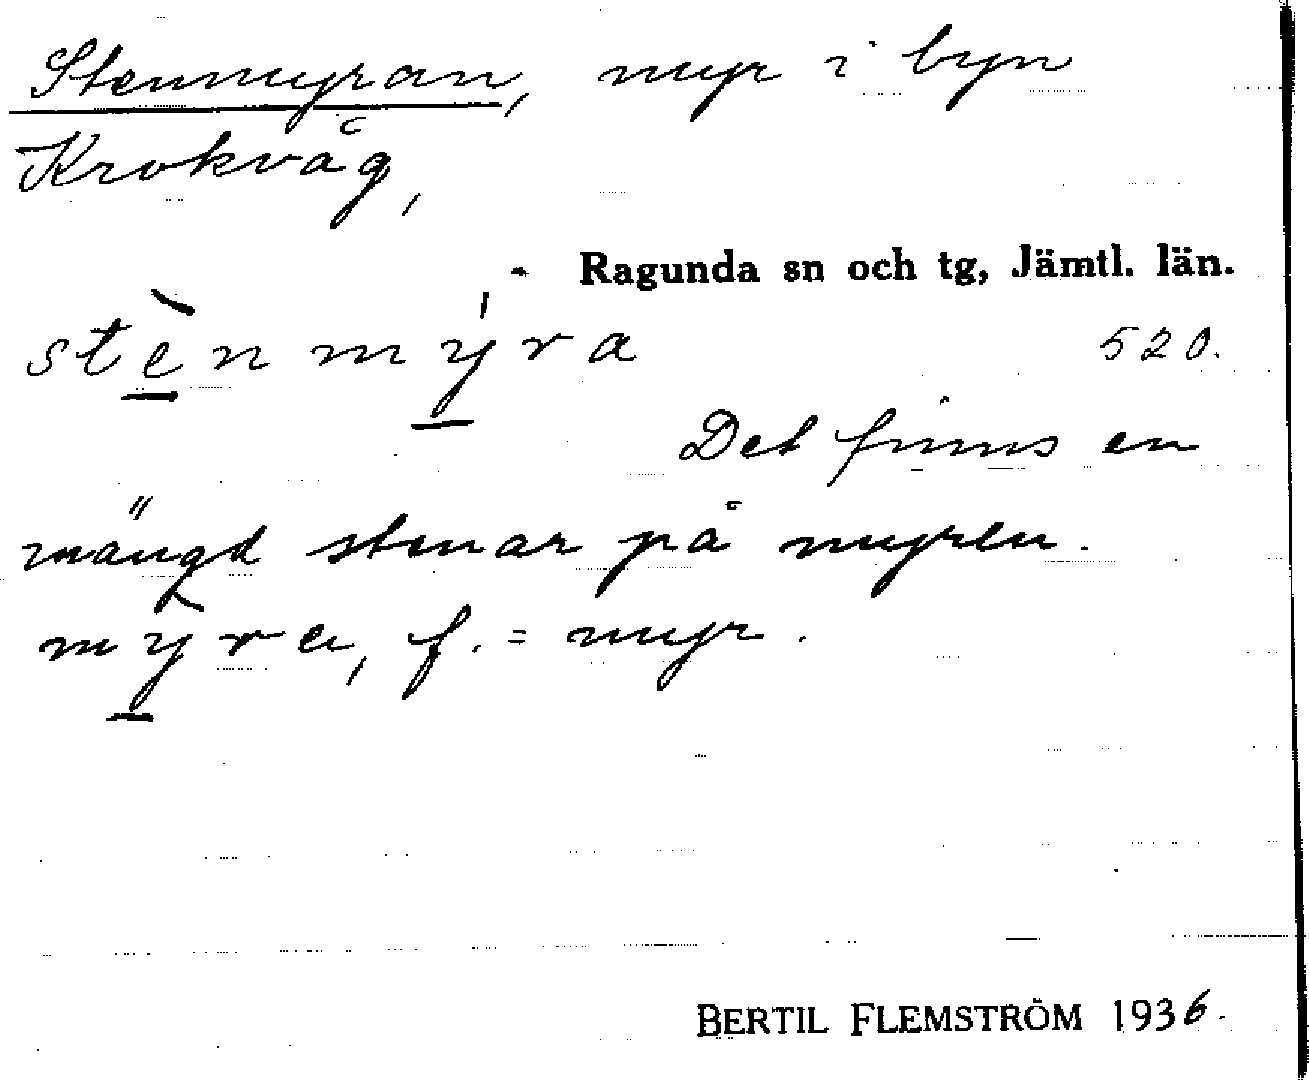 Stenmyran, myr i byn
Krokvåg,
Ragunda sn och tg, Jämtl. län.
stènmýra 520.
Det finns en
mängd stenar på myren.
mỳra, f. = myr.
BERTIL FLEMSTRÖM 1936.